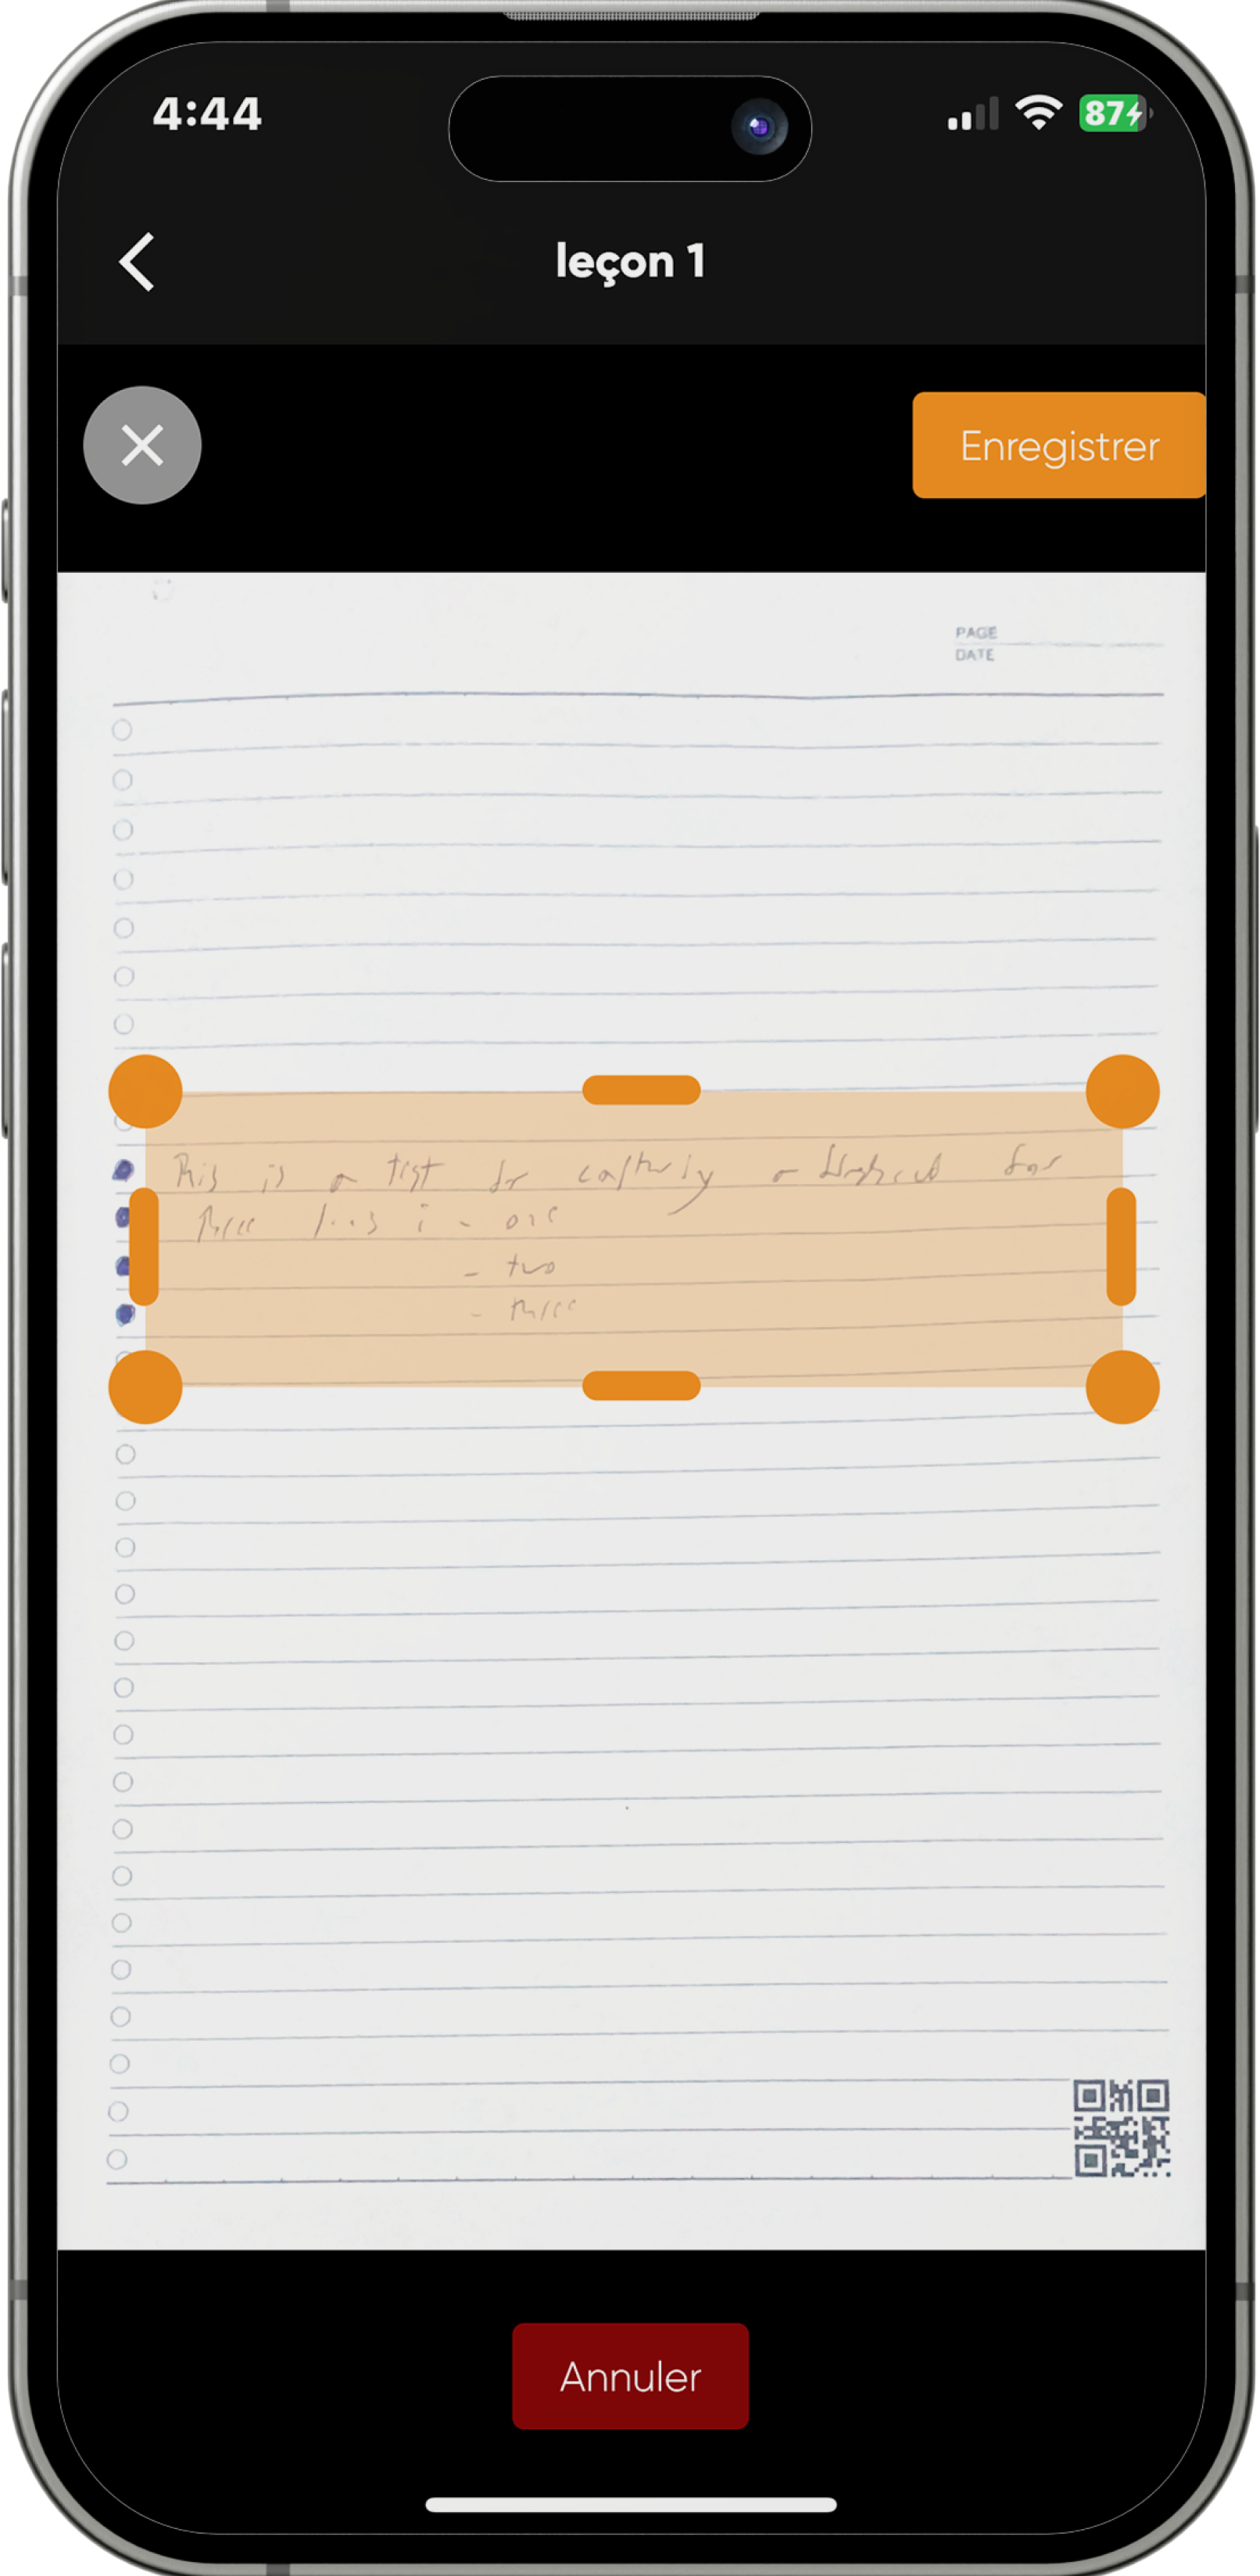 4:44
87
leçon 1
Enregistrer
PAGE
DATE
This is a test for capturing a for
three lines : - one
- two
- three
Annuler